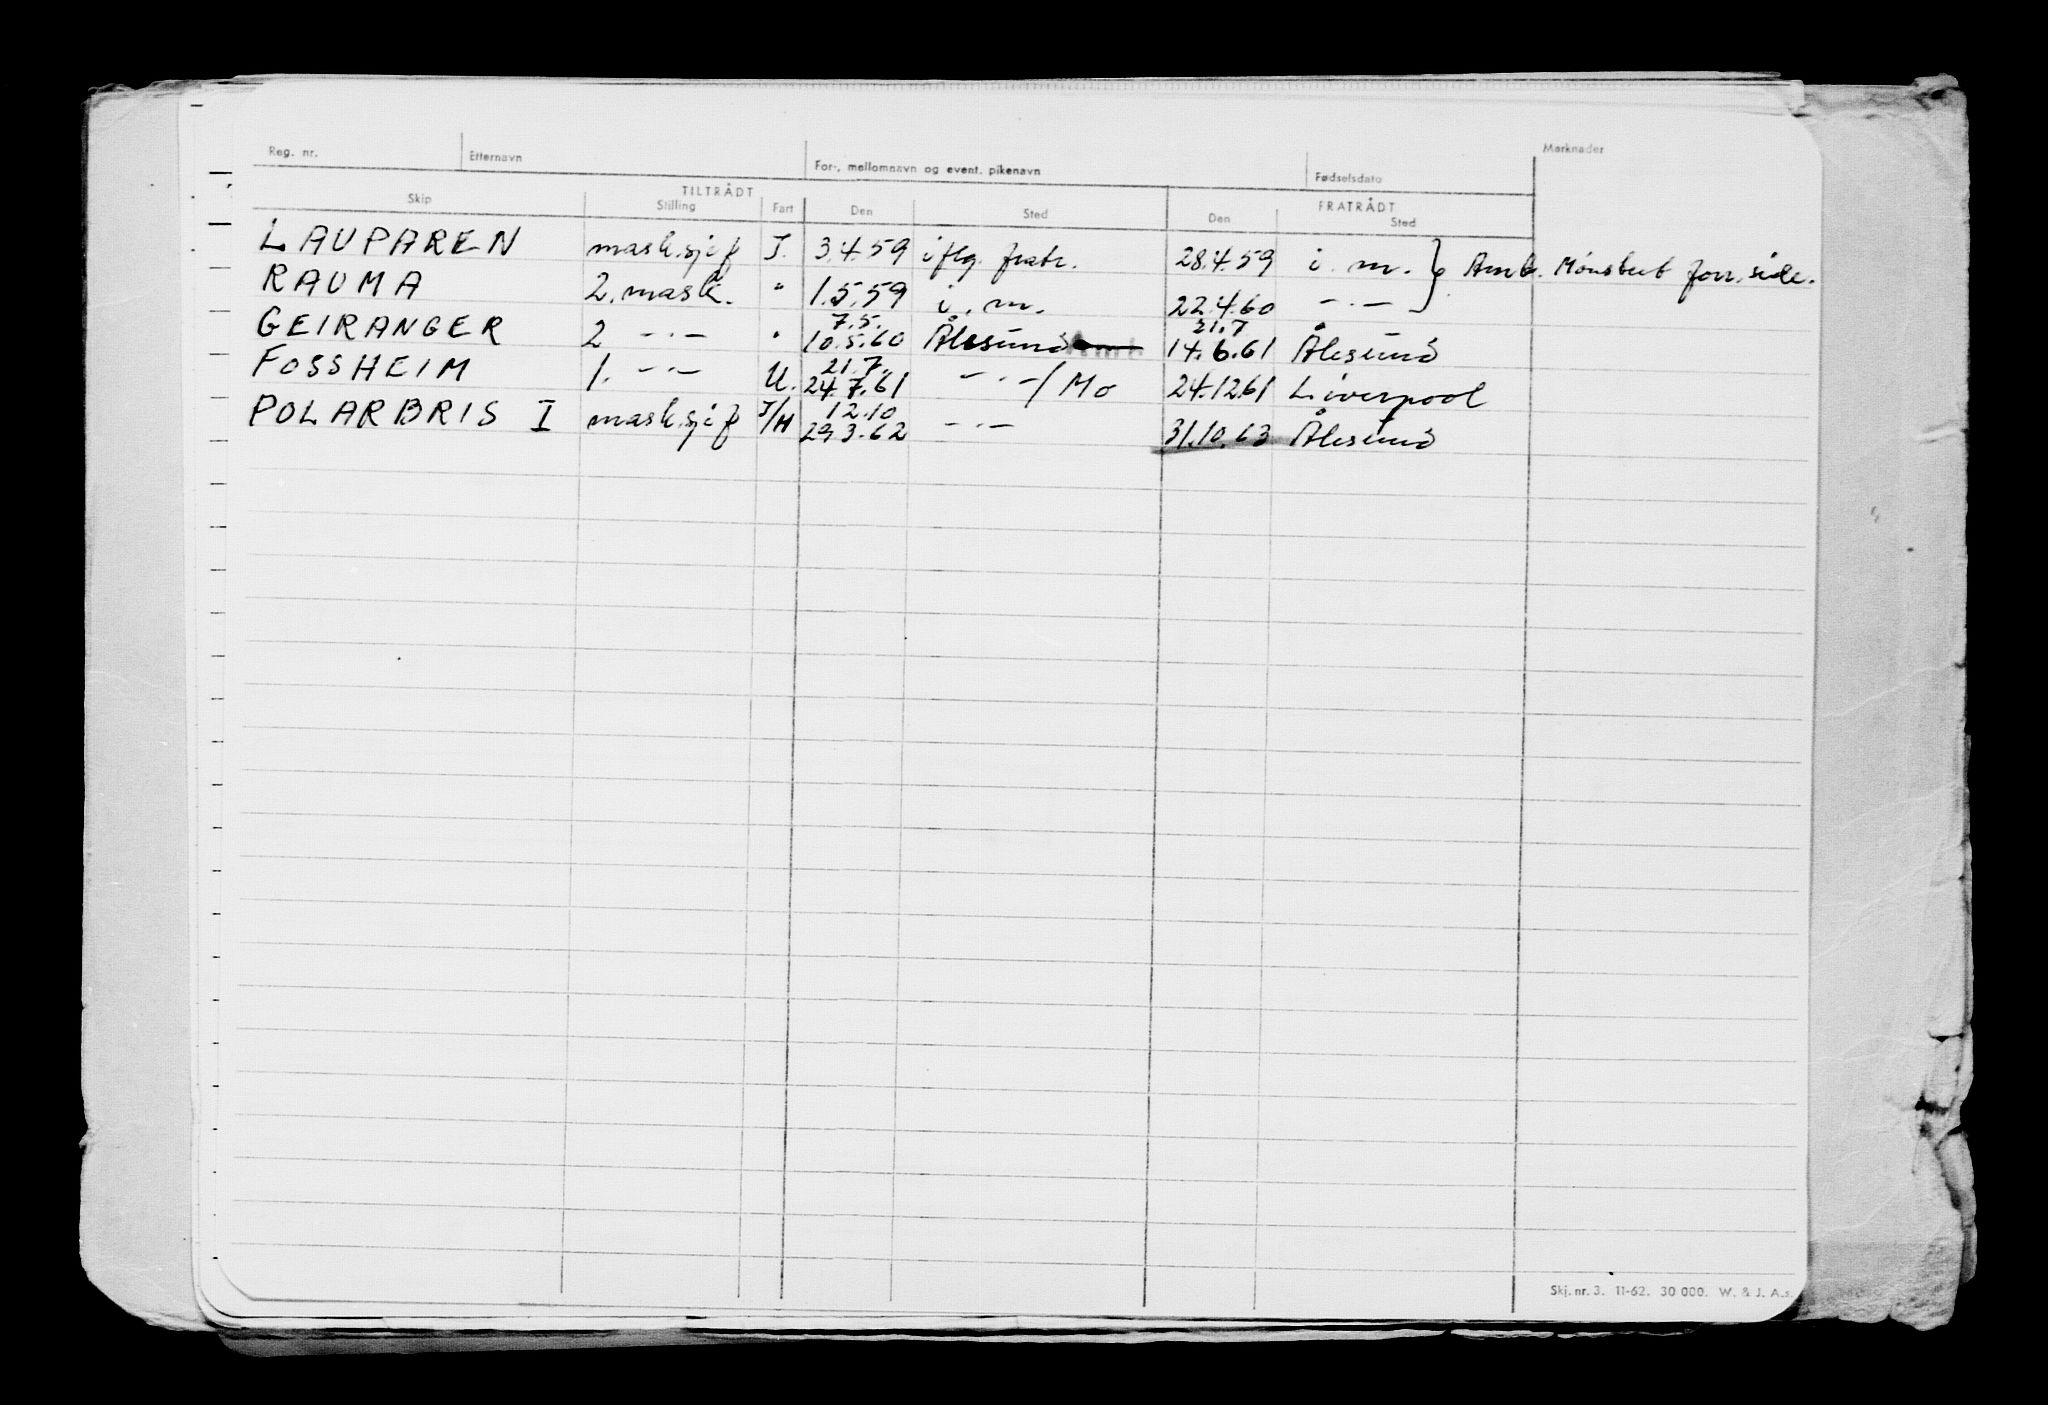 Reg. nr. Etternavn For-, mellomnavn og event. pikenavn Fødselsdato Merknader
TILTRÅDT FRATRÅDT
Skip Stilling Fart Den Sted Den Sted
LAUPAREN mask.sjef I. 3.4.59 iflg. fratr. 28.4.59 i. m. } Amb. Mønstret forr. side.
RAUMA 2. mask. " 1.5.59 i. m. 22.4.60 —"—
7.5. 21.7
GEIRANGER 2 —"— " 10.5.60 Ålesund 14.6.61 Ålesund
21.7.
FOSSHEIM 1. —"— U. 24.7.61 —"—/Mo 24.12.61 Liverpool
12.10
POLARBRIS I mask.sjef I/H 29.3.62 —"— 31.10.63 Ålesund
Skj. nr. 3. 11-62. 30 000. W. & J. A.s.